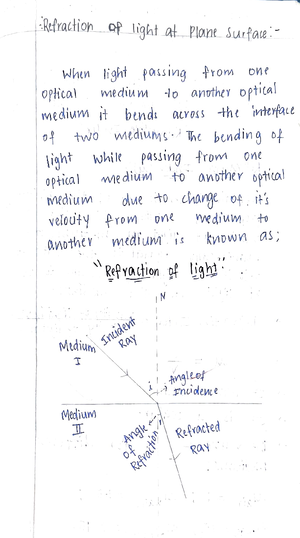 :Refraction of light at Plane Surface:-
When light passing from one
optical medium to another optical
medium it bends across the interface
of two mediums. The bending of
light while passing from one
optical medium to another optical
medium due to change of it's
velouty from one medium to
another medium is known as;
"Refraction of light".
N
Incident
Ray
Medium
I
i
Angle of
Incidence
Medium
II
Angle
of
Refraction
r
Refracted
Ray